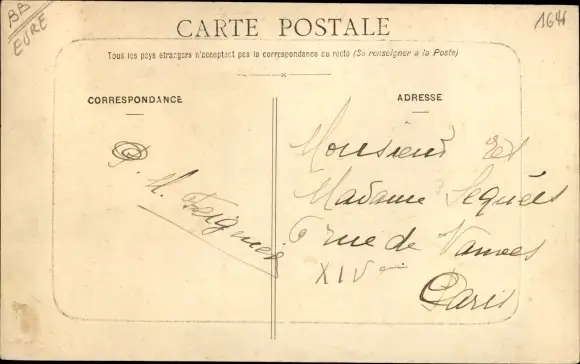 BB
EURE
164
CARTE POSTALE
Tous les pays étrangers n'acceptant pas la correspondance au recto (Se renseigner à la Poste)
CORRESPONDANCE
ADRESSE
Monsieur et
Madame
6 rue de Vanves
XIVe
Paris